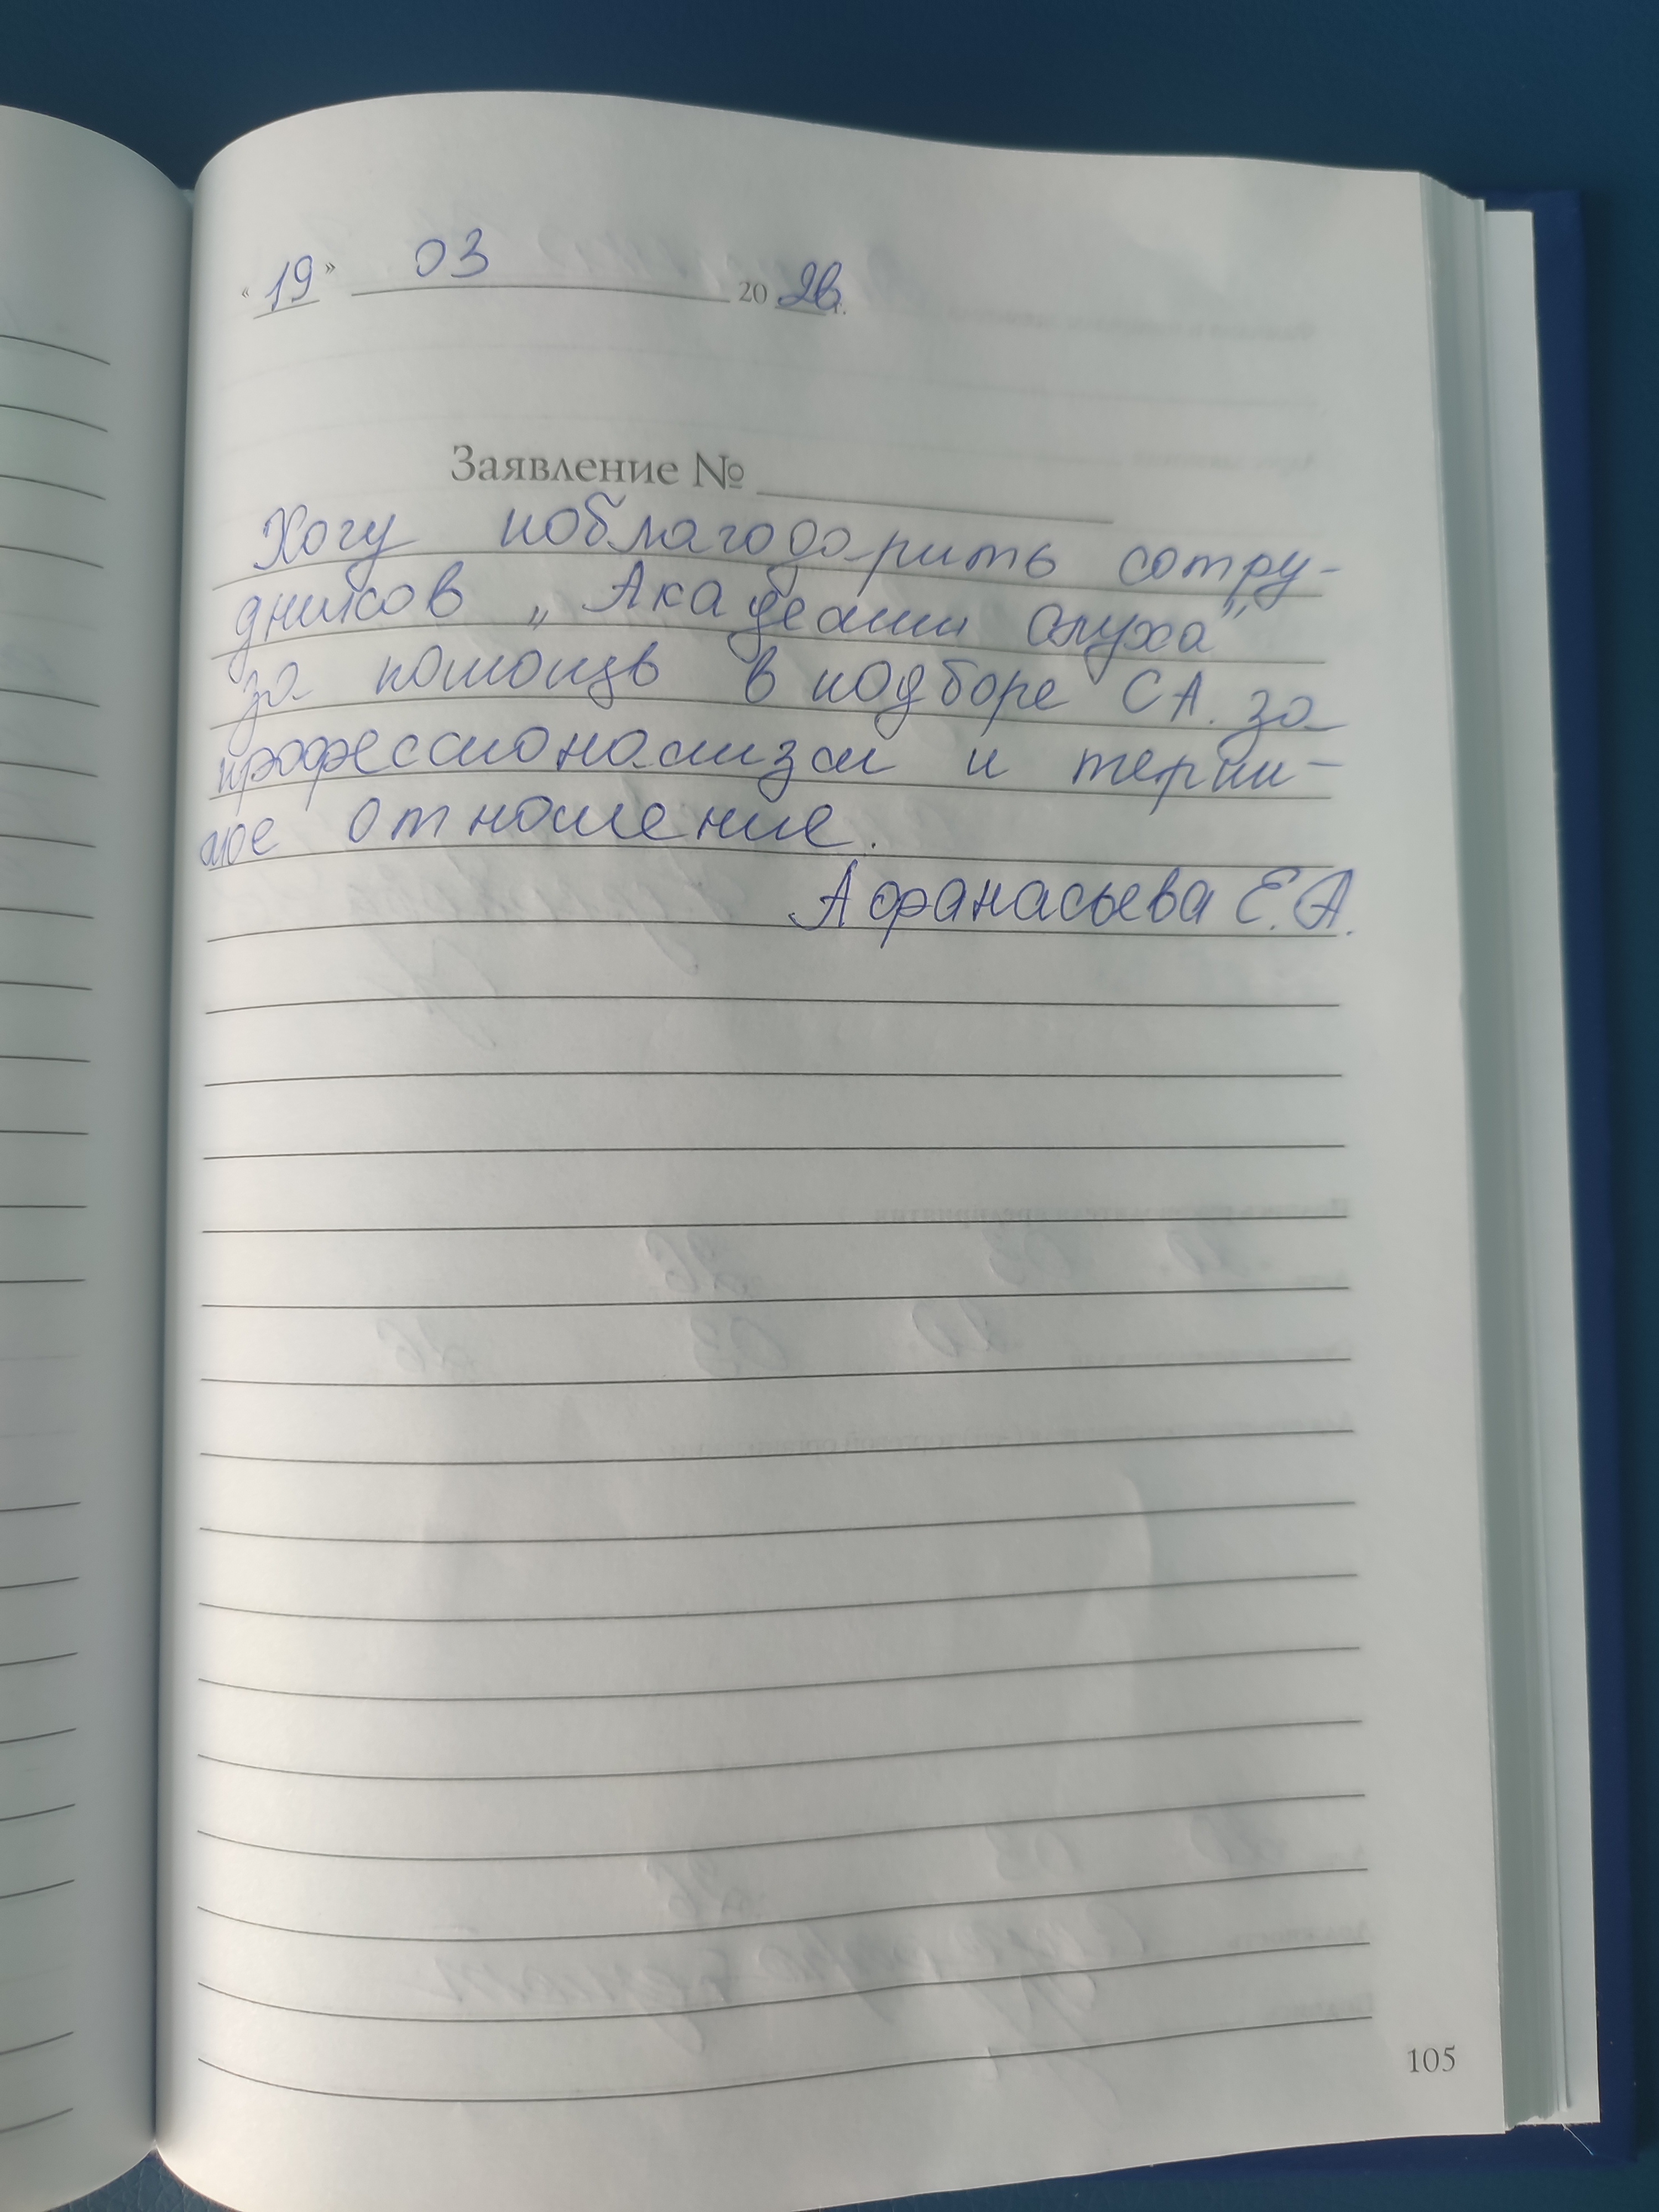 « 19 » 03 2026 г.
Заявление №
Хочу поблагодарить сотру-
дников „Академии слуха"
за помощь в подборе СА. за
профессионализм и терпи-
мое отношение.
Афанасьева Е.А.
105